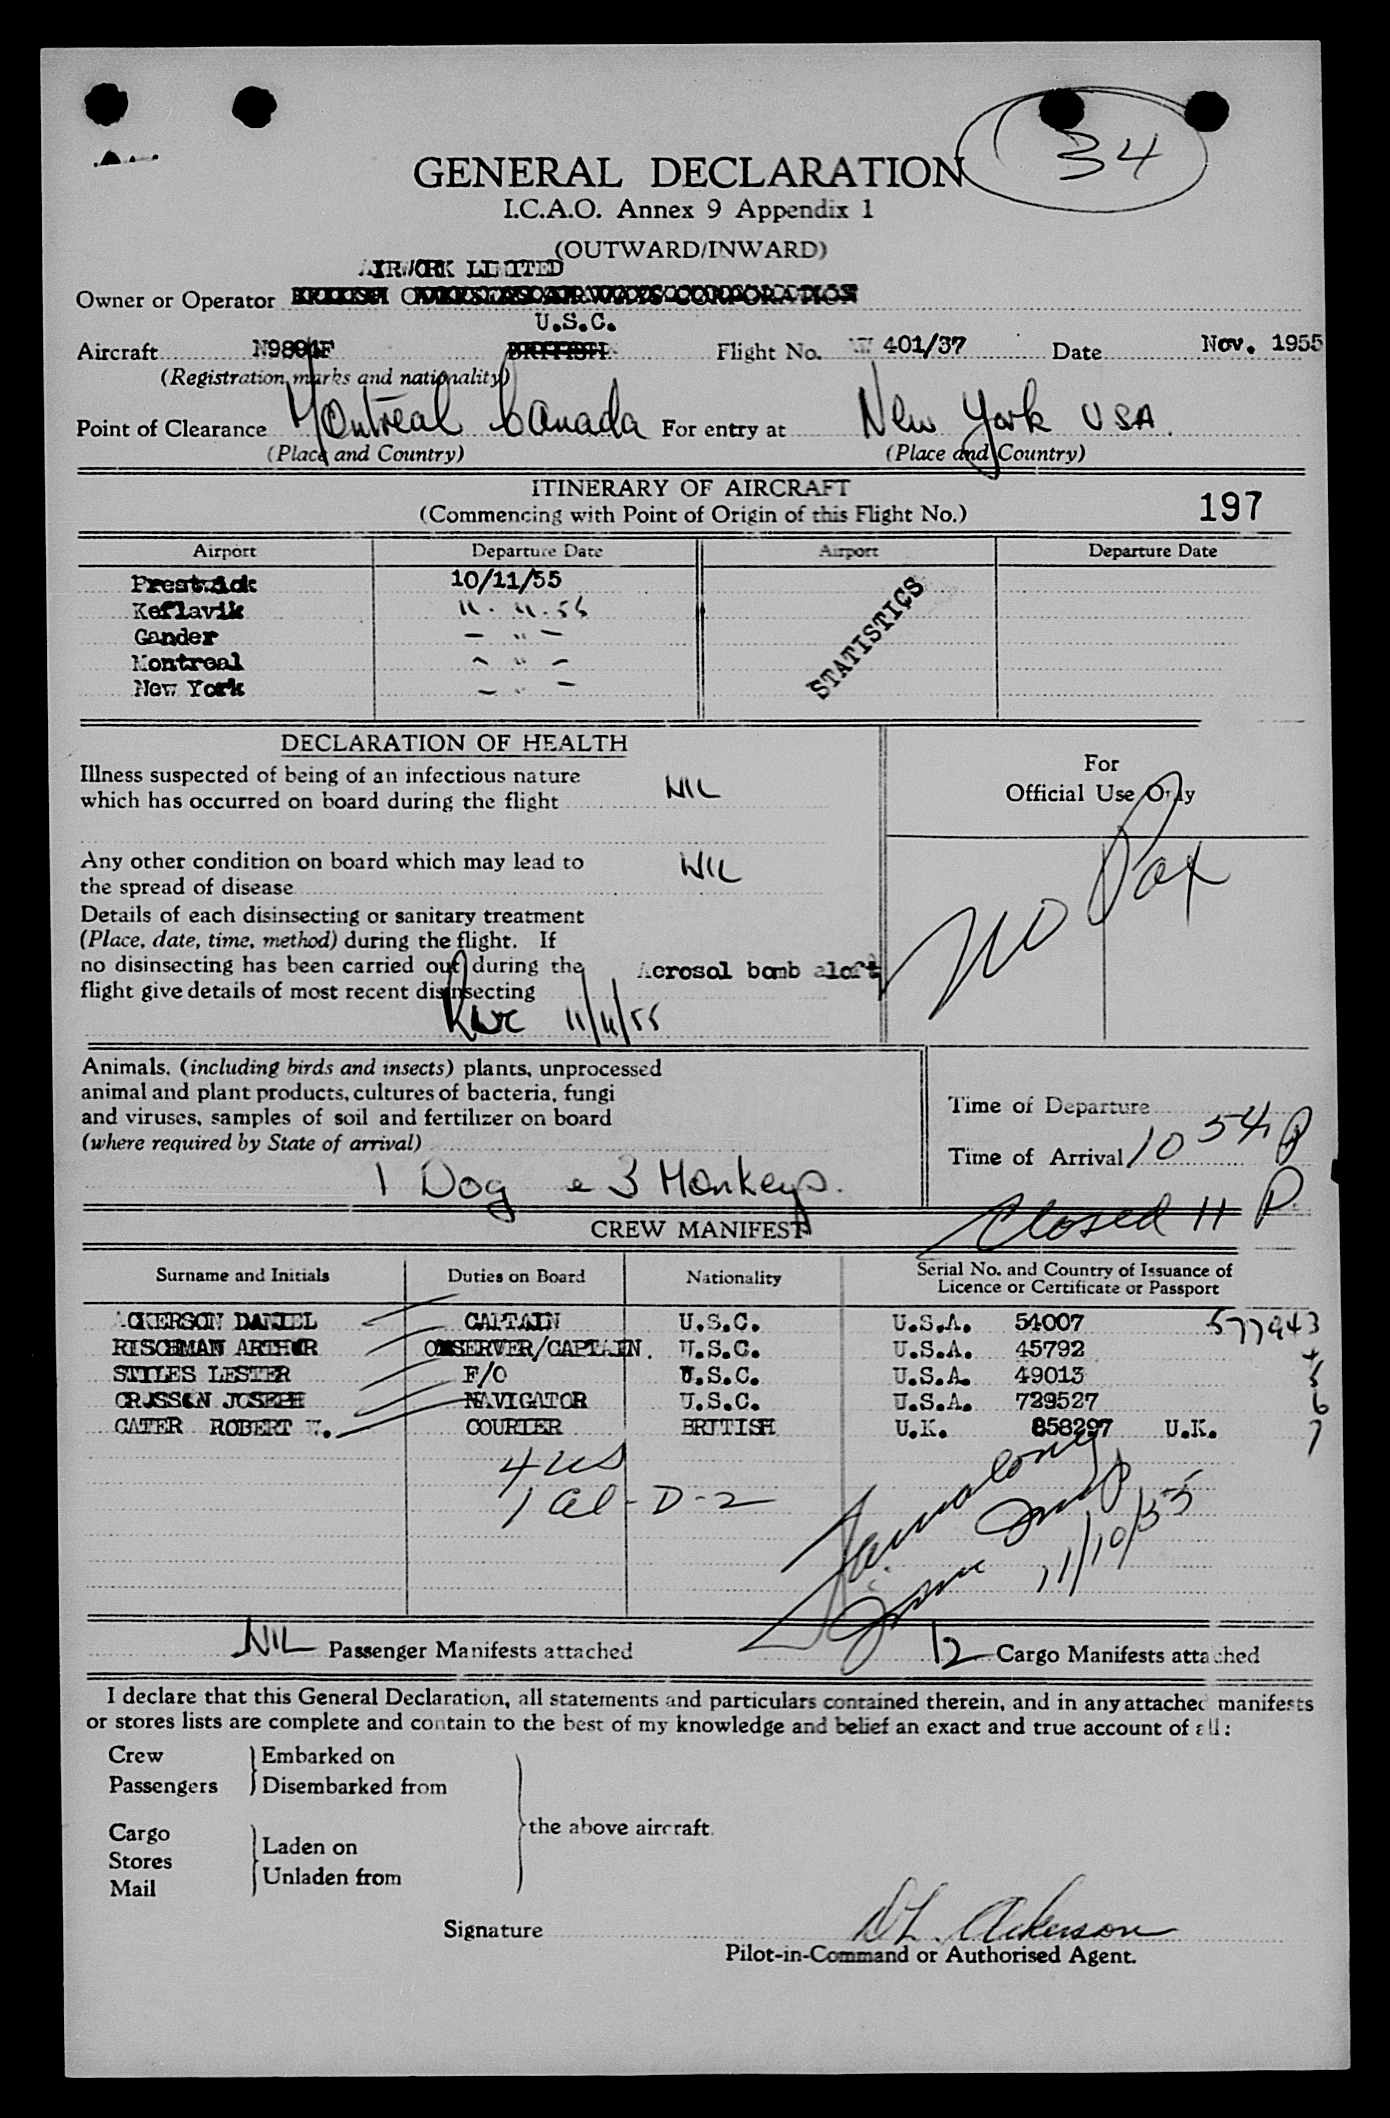 34
GENERAL DECLARATION
I.C.A.O. Annex 9 Appendix 1
(OUTWARD/INWARD)
AIRWORK LIMITED
Owner or Operator BRITISH OVERSEAS AIRWAYS CORPORATION
U.S.C.
Aircraft BRITISH Flight No. 401/37 Date Nov. 1955
(Registration marks and nationality)
Point of Clearance Montreal Canada For entry at New York USA
(Place and Country) (Place and Country)
ITINERARY OF AIRCRAFT
(Commencing with Point of Origin of this Flight No.) 197
Airport Departure Date Airport Departure Date
Prestwick 10/11/55
Keflavik 11. 11. 55
Gander - " -
Montreal - " -
New York - " -
STATISTICS
DECLARATION OF HEALTH
Illness suspected of being of an infectious nature
which has occurred on board during the flight NIL
Any other condition on board which may lead to
the spread of disease NIL
Details of each disinsecting or sanitary treatment
(Place, date, time, method) during the flight. If
no disinsecting has been carried out during the Aerosol bomb aloft
flight give details of most recent disinsecting
11/11/55
For
Official Use Only
No Pax
Animals, (including birds and insects) plants, unprocessed
animal and plant products, cultures of bacteria, fungi
and viruses, samples of soil and fertilizer on board
(where required by State of arrival)
1 Dog e 3 Monkeys.
Time of Departure
Time of Arrival 10 54 P
Closed 11 P.
CREW MANIFEST
Surname and Initials Duties on Board Nationality Serial No. and Country of Issuance of
Licence or Certificate or Passport
ACKERSON DANIEL CAPTAIN U.S.C. U.S.A. 54007 577943
RISCHMAN ARTHUR OBSERVER/CAPTAIN. U.S.C. U.S.A. 45792 4
STILES LESTER F/O U.S.C. U.S.A. 49013 5
JOSEPH NAVIGATOR U.S.C. U.S.A. 729527 6
CATER ROBERT W. COURIER BRITISH U.K. 858297 U.K. 7
4 US
1 al - D-2
11/10/55
NIL Passenger Manifests attached 12 Cargo Manifests attached
I declare that this General Declaration, all statements and particulars contained therein, and in any attached manifests
or stores lists are complete and contain to the best of my knowledge and belief an exact and true account of all:
Crew Embarked on
Passengers Disembarked from
the above aircraft.
Cargo
Stores Laden on
Mail Unladen from
Signature DL Ackerson
Pilot-in-Command or Authorised Agent.